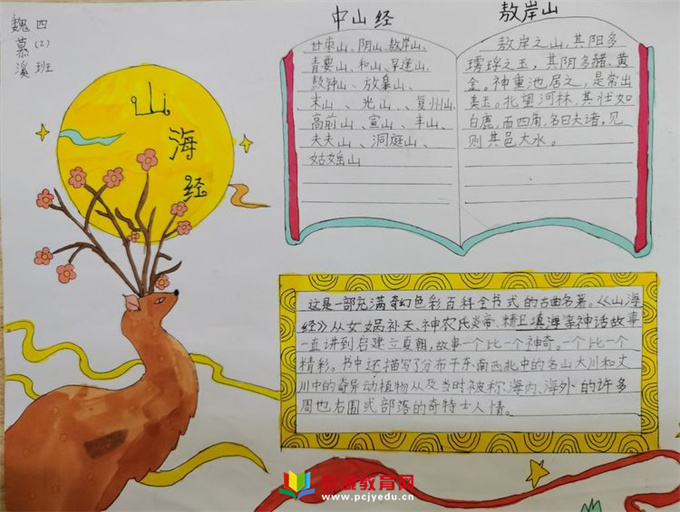 四(2)班
魏慕溪
山海经
中山经
甘枣山、阴山、敖岸山、
青要山、和山、早逢山、
鼓钟山、放皋山、
末山、光山、复州山、
高前山、宣山、丰山、
夫夫山、洞庭山、
姑媱山
敖岸山
敖岸之山,其阳多
㻬琈之玉,其阴多赭、黄
金。神熏池居之,是常出
美玉。北望河林,其壮如
白鹿,而四角,名曰夫诸,见
则其邑大水。
这是一部充满奇幻色彩百科全书式的古曲名著。《山海
经》从女娲补天、神农氏炎帝、精卫填海亲神话故事
一直讲到启建立夏朝,故事一个比一个神奇。一个比一个
精彩。书中还描写了分布于东南西北中的名山大川和丈
川中的奇异动植物从及当时被称海内、海外的许多
周也右国或部落的奇特士人情。
教育网
www.pcjyedu.cn